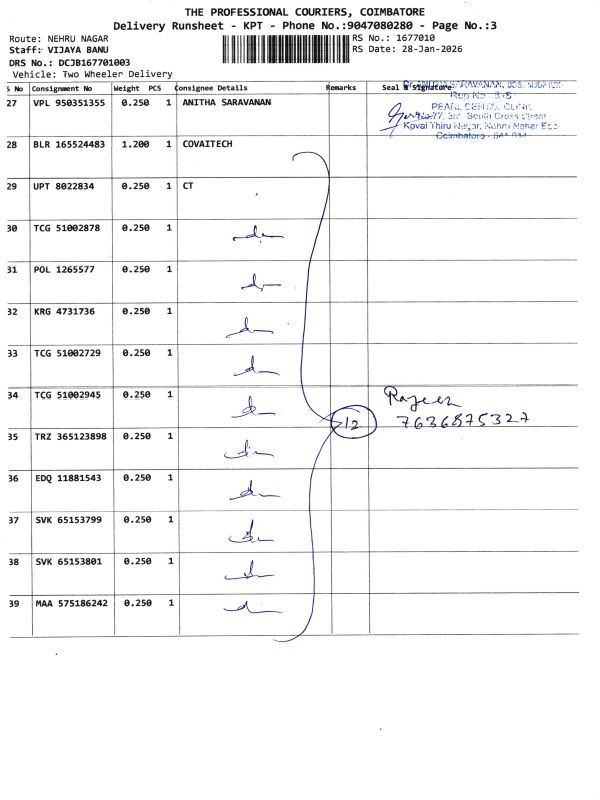 THE PROFESSIONAL COURIERS, COIMBATORE
Delivery Runsheet - KPT - Phone No.:9047080280 - Page No.:3
Route: NEHRU NAGAR
RS No.: 1677010
Staff: VIJAYA BANU
RS Date: 28-Jan-2026
DRS No.: DCJB167701003
Vehicle: Two Wheeler Delivery
S No Consignment No Weight PCS Consignee Details Remarks Seal & Signature
27 VPL 950351355 0.250 1 ANITHA SARAVANAN
SARAVANAN, BDS,
PEARL DENTAL CLINIC
South Cross Street
Koval Thiru Nagar, Nehru Nagar
Coimbatore - 641 014
28 BLR 165524483 1.200 1 COVAITECH
29 UPT 8022834 0.250 1 CT
30 TCG 51002878 0.250 1
31 POL 1265577 0.250 1
32 KRG 4731736 0.250 1
33 TCG 51002729 0.250 1
34 TCG 51002945 0.250 1
Rajeesh
12 7636875327
35 TRZ 365123898 0.250 1
36 EDQ 11881543 0.250 1
37 SVK 65153799 0.250 1
38 SVK 65153801 0.250 1
39 MAA 575186242 0.250 1